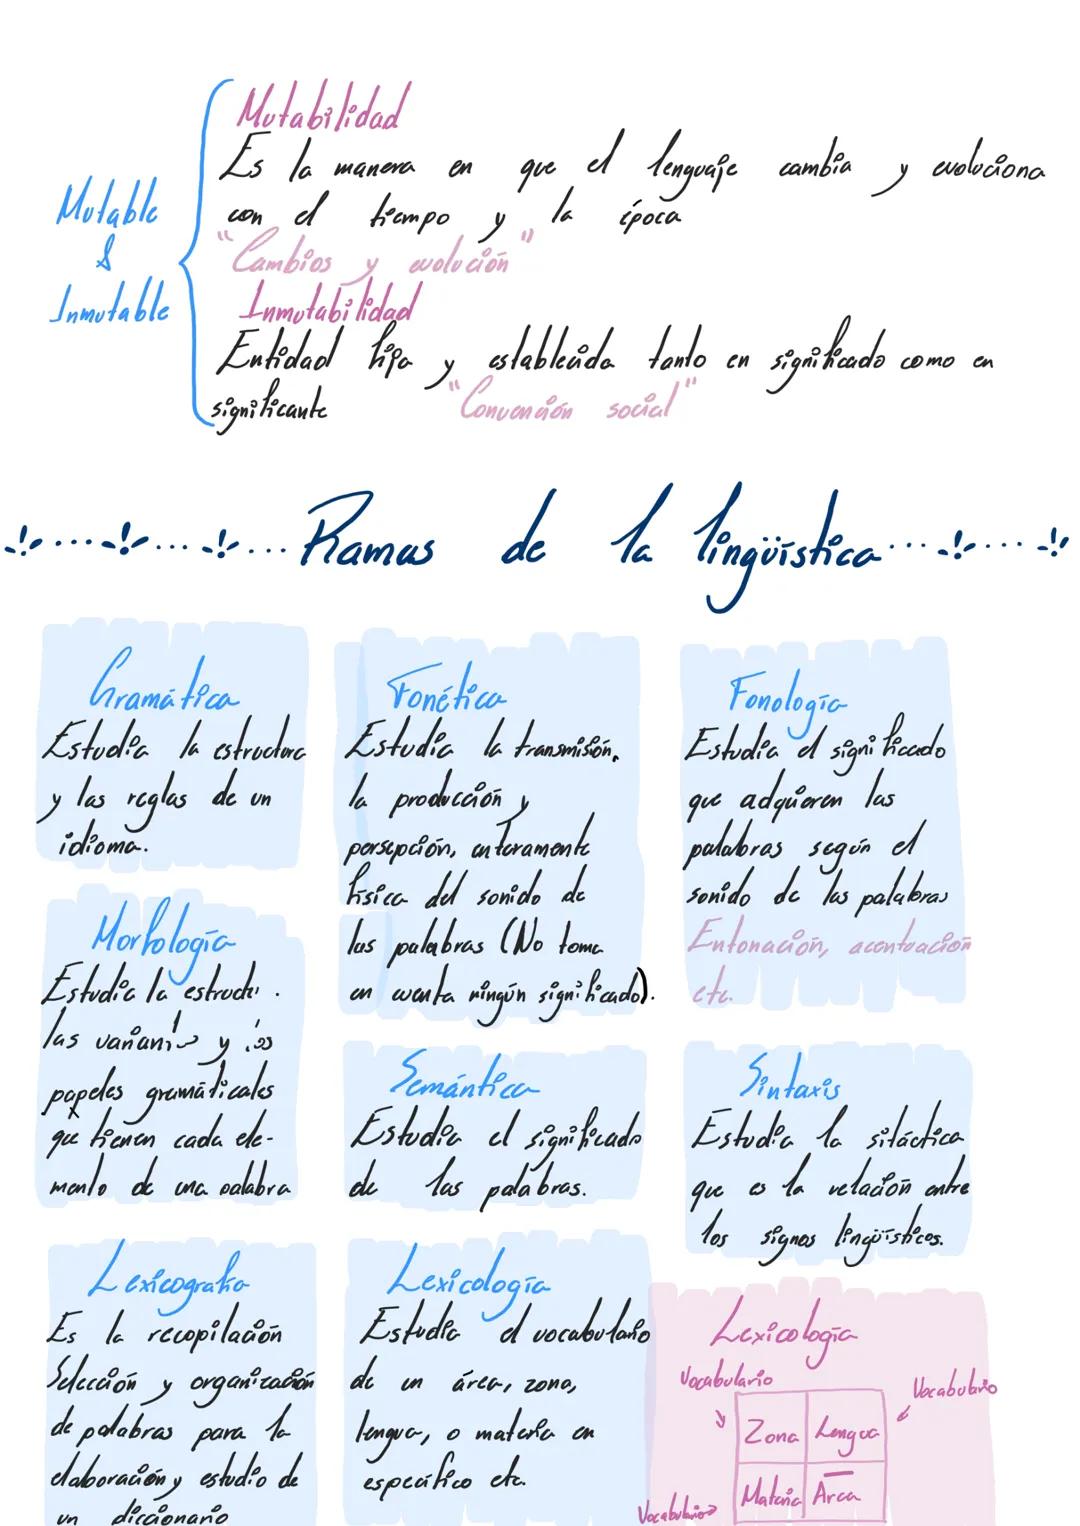 Mutabilidad
Es la manera en que el lenguaje cambia y evoluciona
con el tiempo y la época
"Cambios y evolución"
Mutable
&
Inmutable
Inmutabilidad
Entidad fija y establecida tanto en significado como en
significante "Convención social"
Ramas de la lingüística
Gramática
Estudia la estructura
y las reglas de un
idioma.
Fonética
Estudia la transmisión,
la producción y
persepción, enteramente
física del sonido de
las palabras (No toma
en cuenta ningún significado).
Fonología
Estudia el significado
que adquieren las
palabras según el
sonido de las palabras
Entonación, acentuación
etc.
Morfología
Estudia la
las y
papeles gramáticales
que tienen cada ele-
mento de una palabra
Semántica
Estudia el significado
de las palabras.
Sintaxis
Estudia la sitáctica
que es la relación entre
los signos lingüísticos.
Lexicografía
Es la recopilación
Selección y organización
de palabras para la
elaboración y estudio de
un diccionario
Lexicología
Estudia el vocabulario
de un área, zona,
lengua, o materia en
específico etc.
Lexicología
Vocabulario
Vocabulario
Zona Lengua
Materia Área
Vocabulario